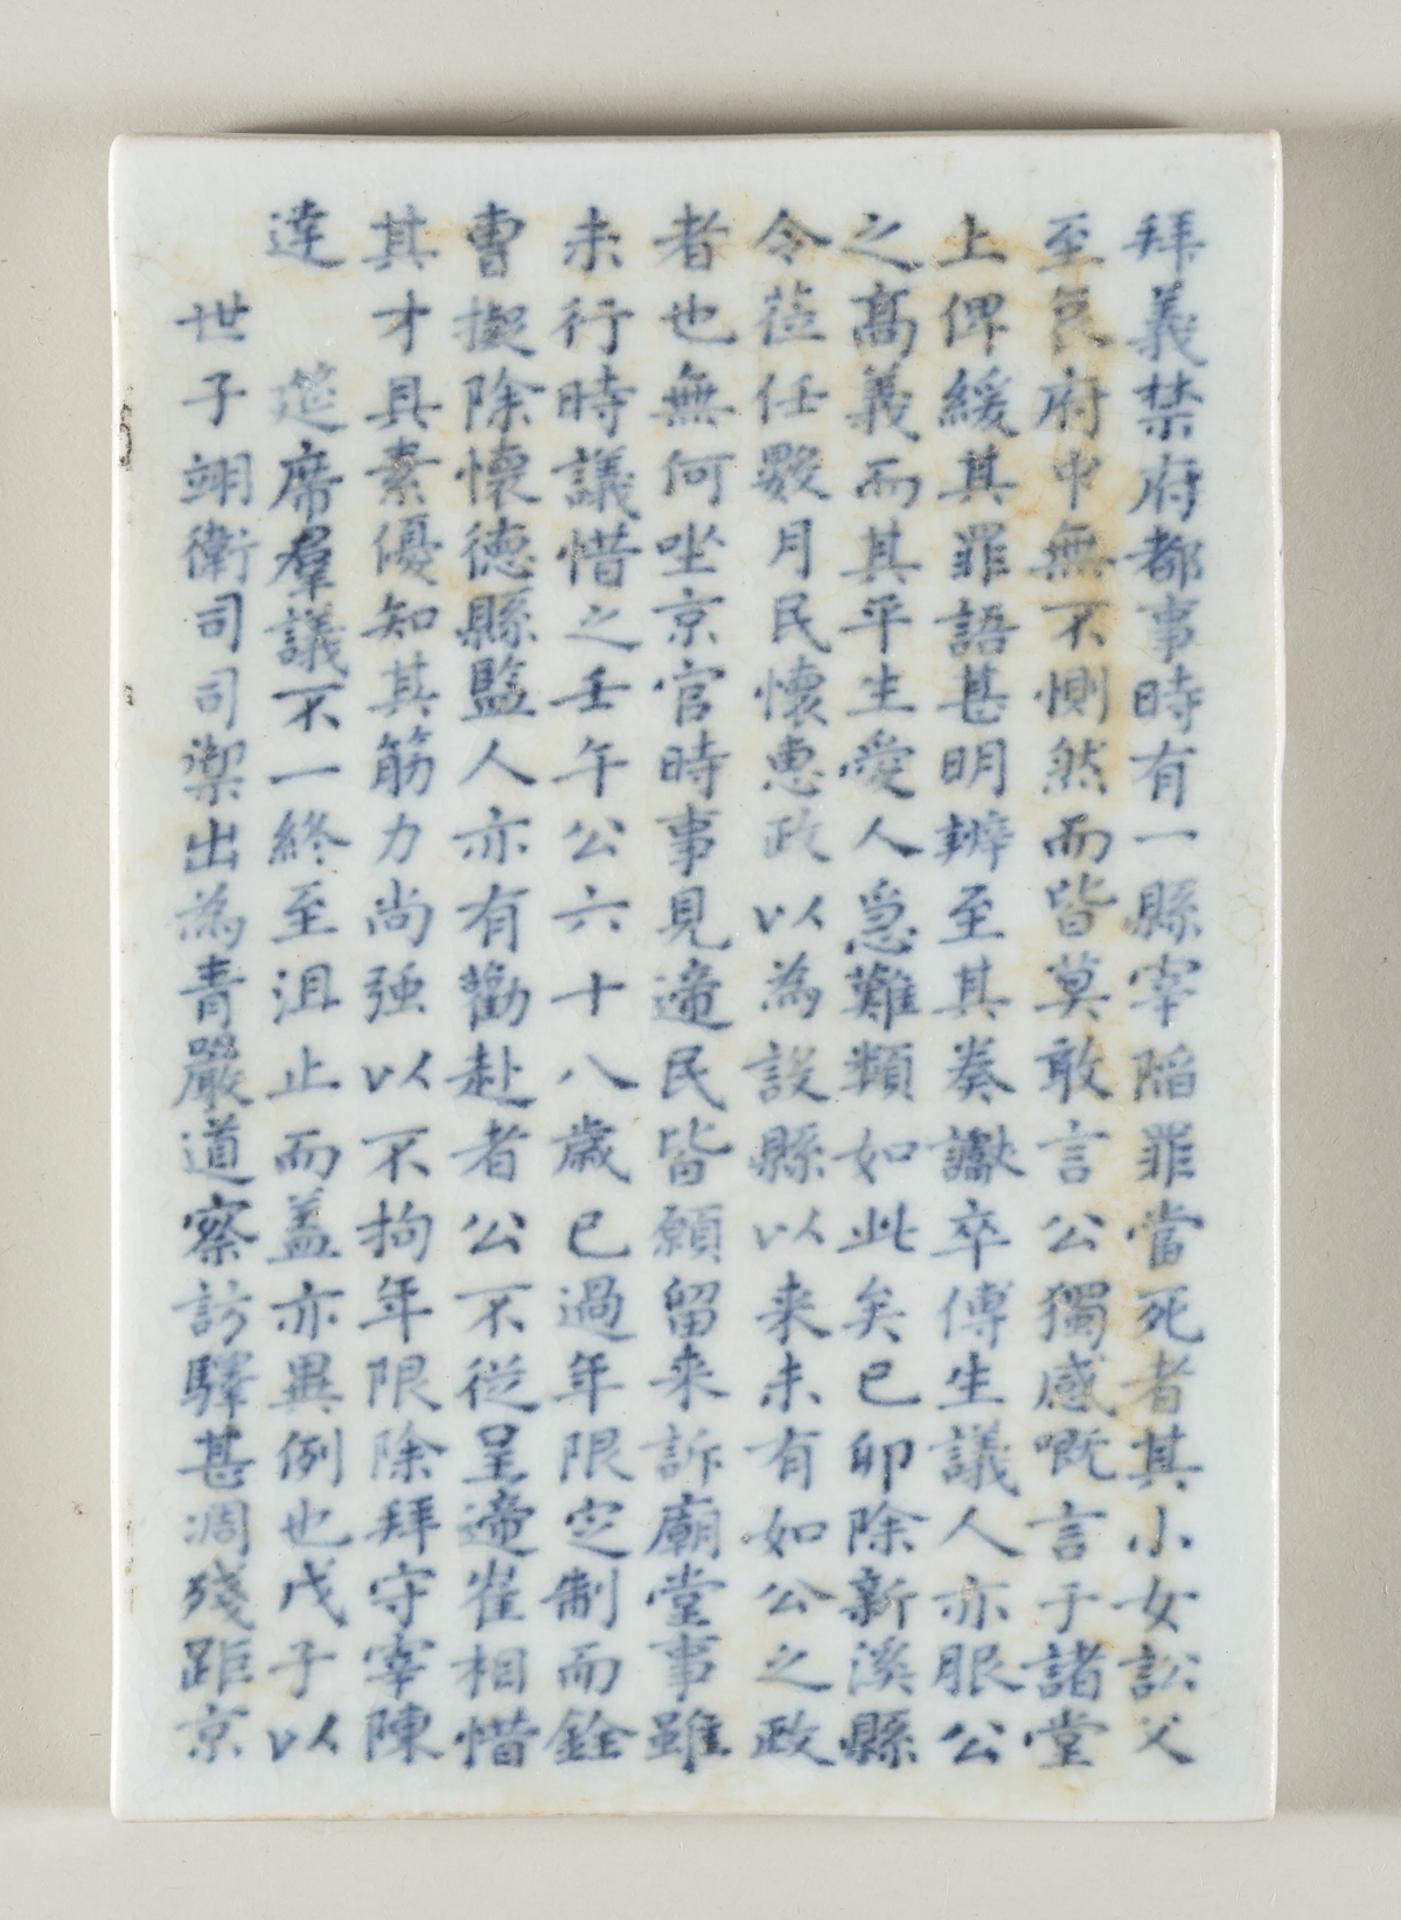 拜義禁府都事時有一縣宰陷罪當死者其小女訟父
至哀府中無不惻然而皆莫敢言公獨感嘅言于諸堂
上俾緩其罪語甚明辨至其奏讞卒傅生議人亦服公
之高義而其平生愛人急難類如此矣己卯除新溪縣
令莅任數月民懷惠政以為設縣以来未有如公之政
者也無何坐京官時事見遞民皆願留来訴廟堂事雖
未行時議惜之壬午公六十八歲已過年限定制而銓
曹擬除懷德縣監人亦有勸赴者公不從呈遞崔相惜
其才具素優知其筋力尚強以不拘年限除拜守宰陳
達　筵席羣議不一終至沮止而盖亦異例也戊子以
世子翊衛司司禦出為青巖道察訪驛甚凋殘距京